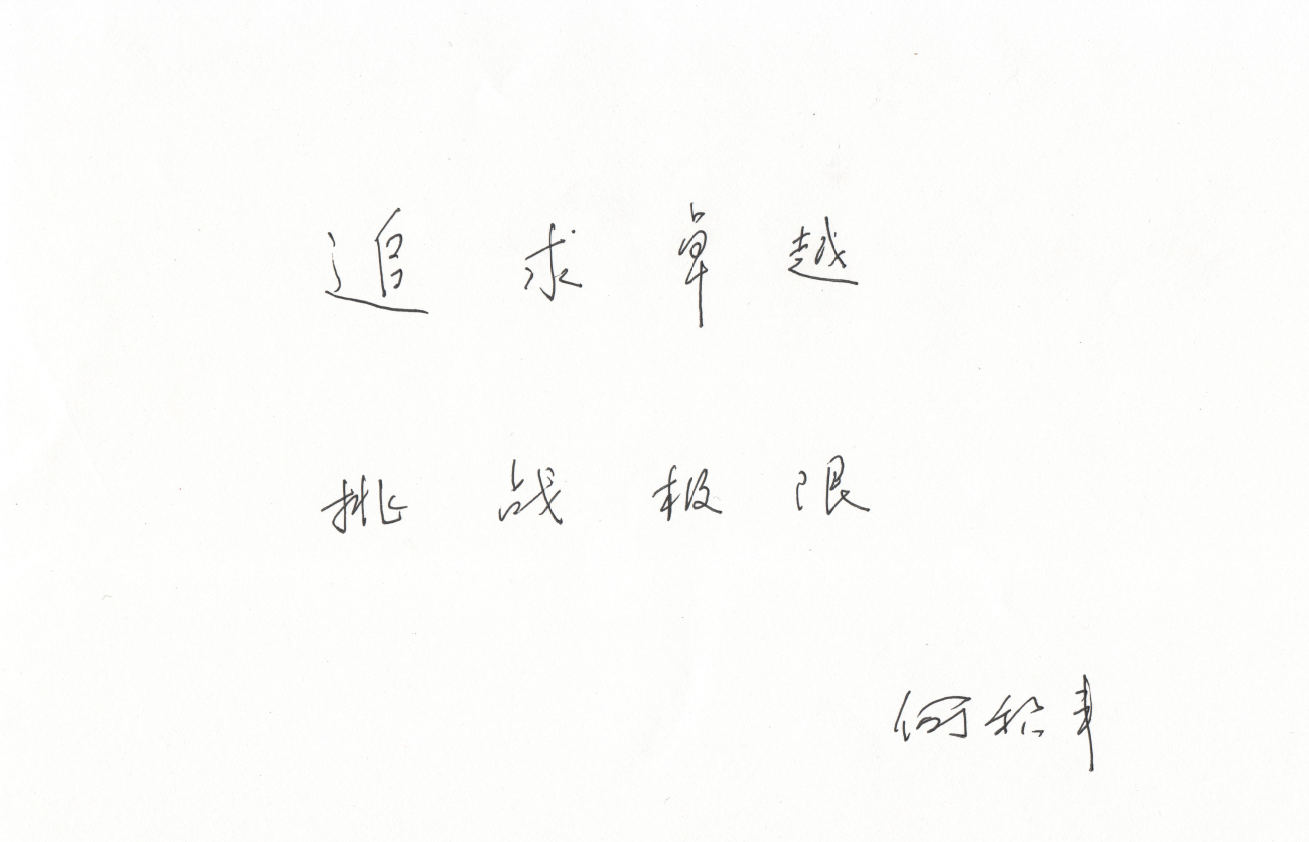 追求卓越
挑战极限
何积丰